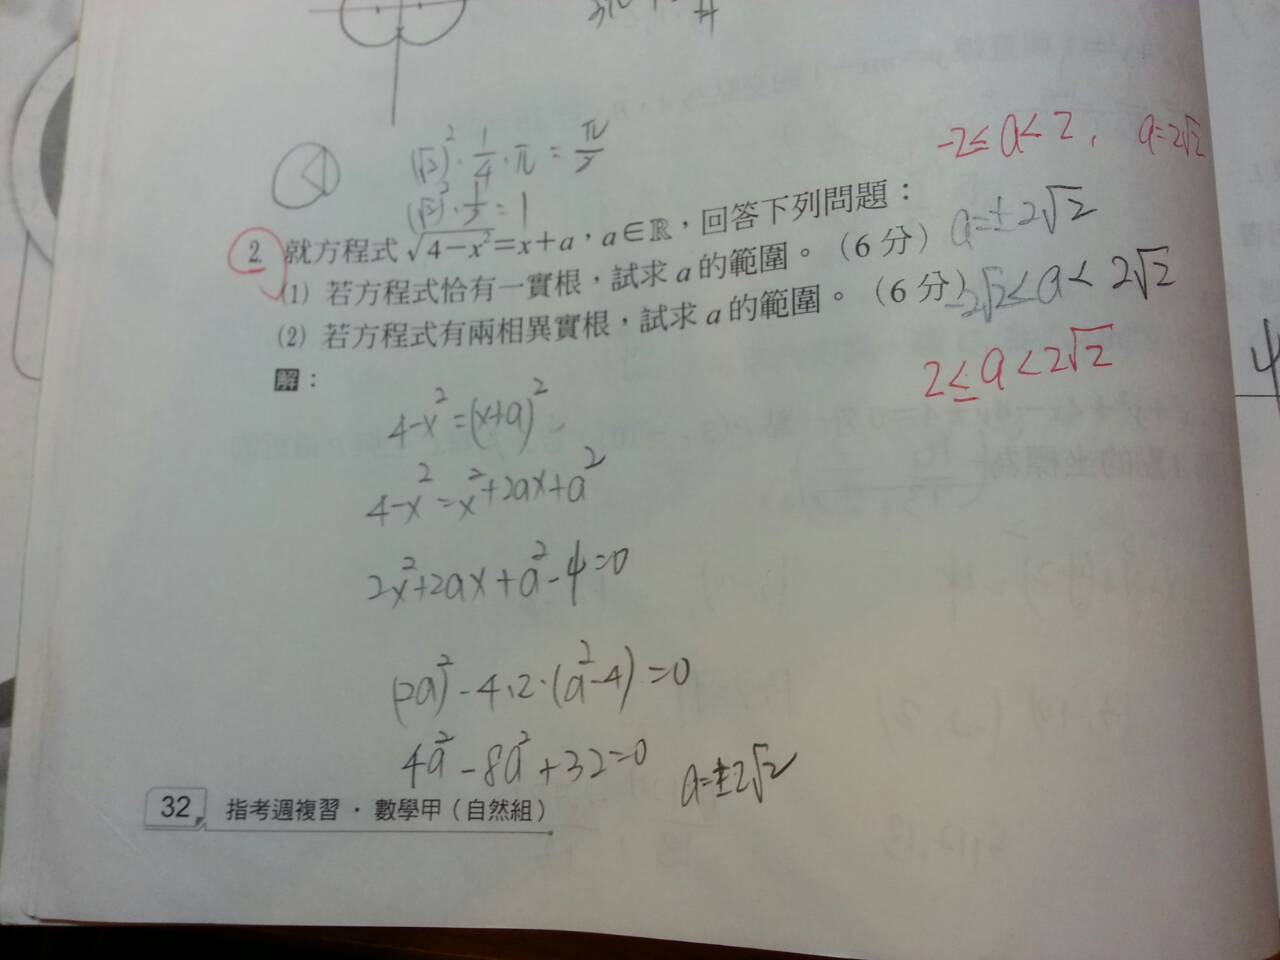 (√2)²·1/4·π = π/2
(√2)²·1/2 = 1
-2≤a<2, a=2√2
2. 就方程式 √4-x² = x+a,a∈ℝ,回答下列問題:
(1) 若方程式恰有一實根,試求 a 的範圍。(6 分) a=±2√2
(2) 若方程式有兩相異實根,試求 a 的範圍。(6 分) -2√2<a<2√2
2≤a<2√2
解:
4-x²=(x+a)²
4-x²=x²+2ax+a²
2x²+2ax+a²-4=0
(2a)²-4·2·(a²-4)=0
4a²-8a²+32=0 a=±2√2
32 指考週複習・數學甲(自然組)